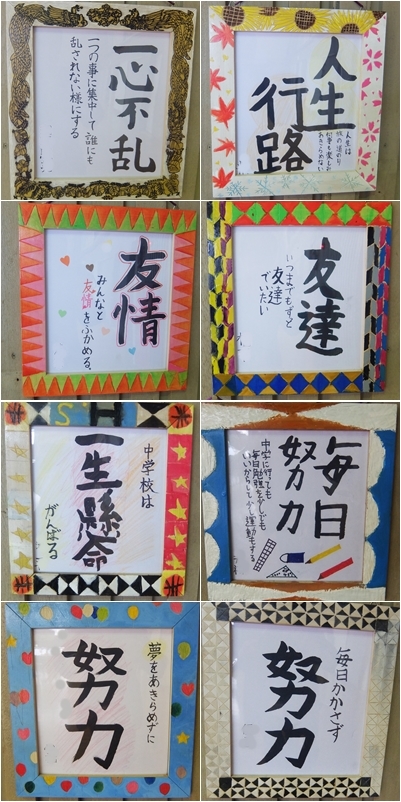 一心不乱
一つの事に集中して誰にも
乱されない様にする
人生
行路
人生は
あきらめない
友情
みんなと
友情をふかめる。
友達
いつまでもずっと
友達
でいたい
SH
中学校は
一生懸命
がんばる
毎日
努力
中学に行っても
毎日勉強を少しでも
いいからして少し運動もする
夢をあきらめずに
努力
毎日かかさず
努力